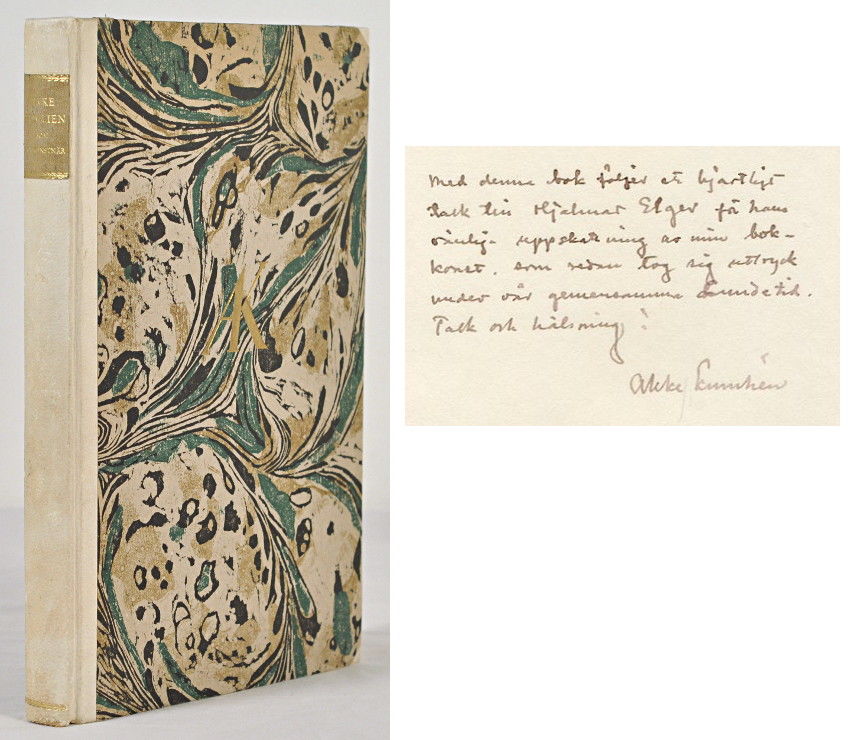 AK
Med denna bok följer ett hjärtligt
tack till Hjalmar Elger för hans
vänliga uppskattning av min bok-
konst, som redan tog sig uttryck
under vår gemensamma Lundatid.
Tack och hälsning!
Akke Kumlien